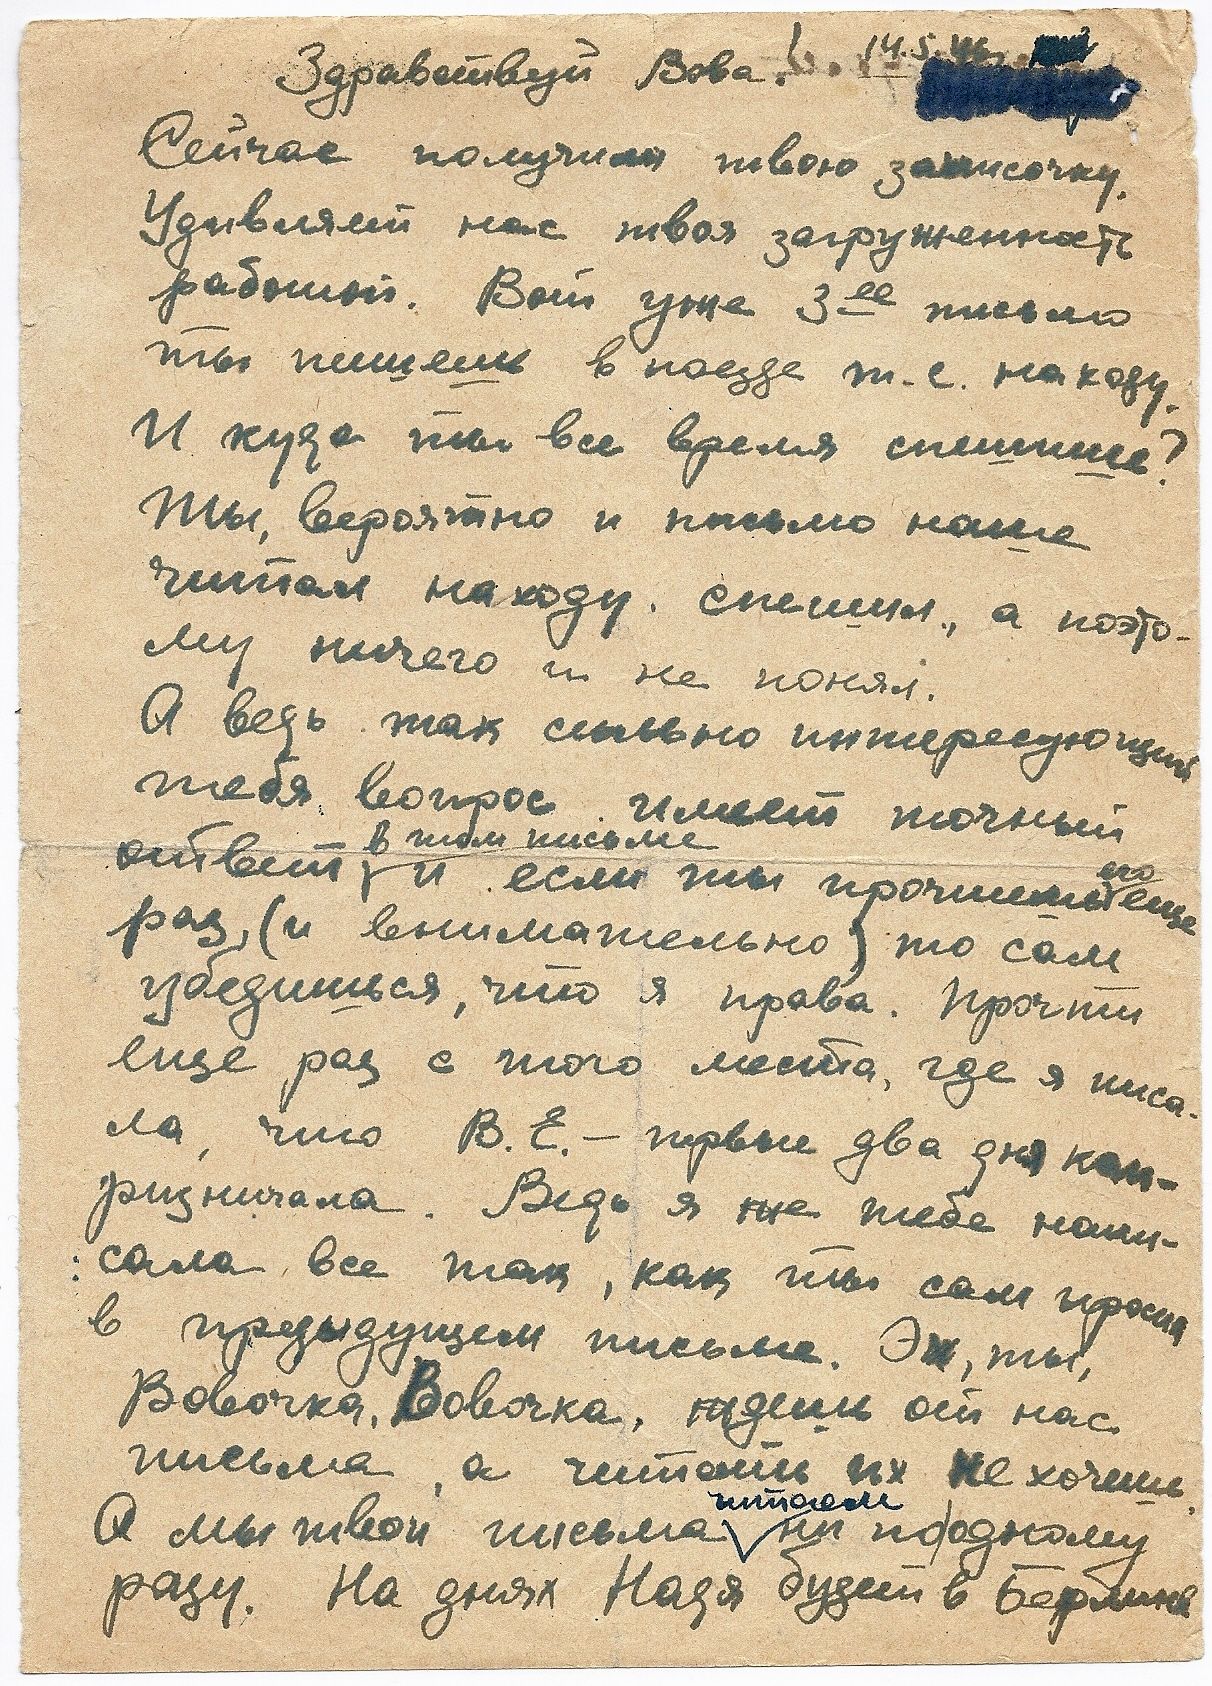 Здравствуй Вова! 14.5.46
Сейчас получили твою записочку.
Удивляет нас твоя загруженность
работой. Вот уже 3ее письмо
ты пишешь в поезде т.е. на ходу.
И куда ты все время спешишь?
Ты, вероятно и письмо наше
читал на ходу. спешил, а поэто-
му ничего и не понял.
А ведь так сильно интересующий
тебя вопрос имеет точный
ответ в том письме и если ты прочтешь его еще
раз, (и внимательно) то сам
убедишься, что я права. Прочти
еще раз с того места, где я писа-
ла, что В.Е. – первые два дня кап-
ризничала. Ведь я же тебе напи-
сала все так, как ты сам просил
в предыдущем письме. Эх, ты,
Вовочка, Вовочка, ждешь от нас
письма, а читать их не хочешь.
А мы твои письма читаем ни по одному
разу. На днях Надя будет в Берлине